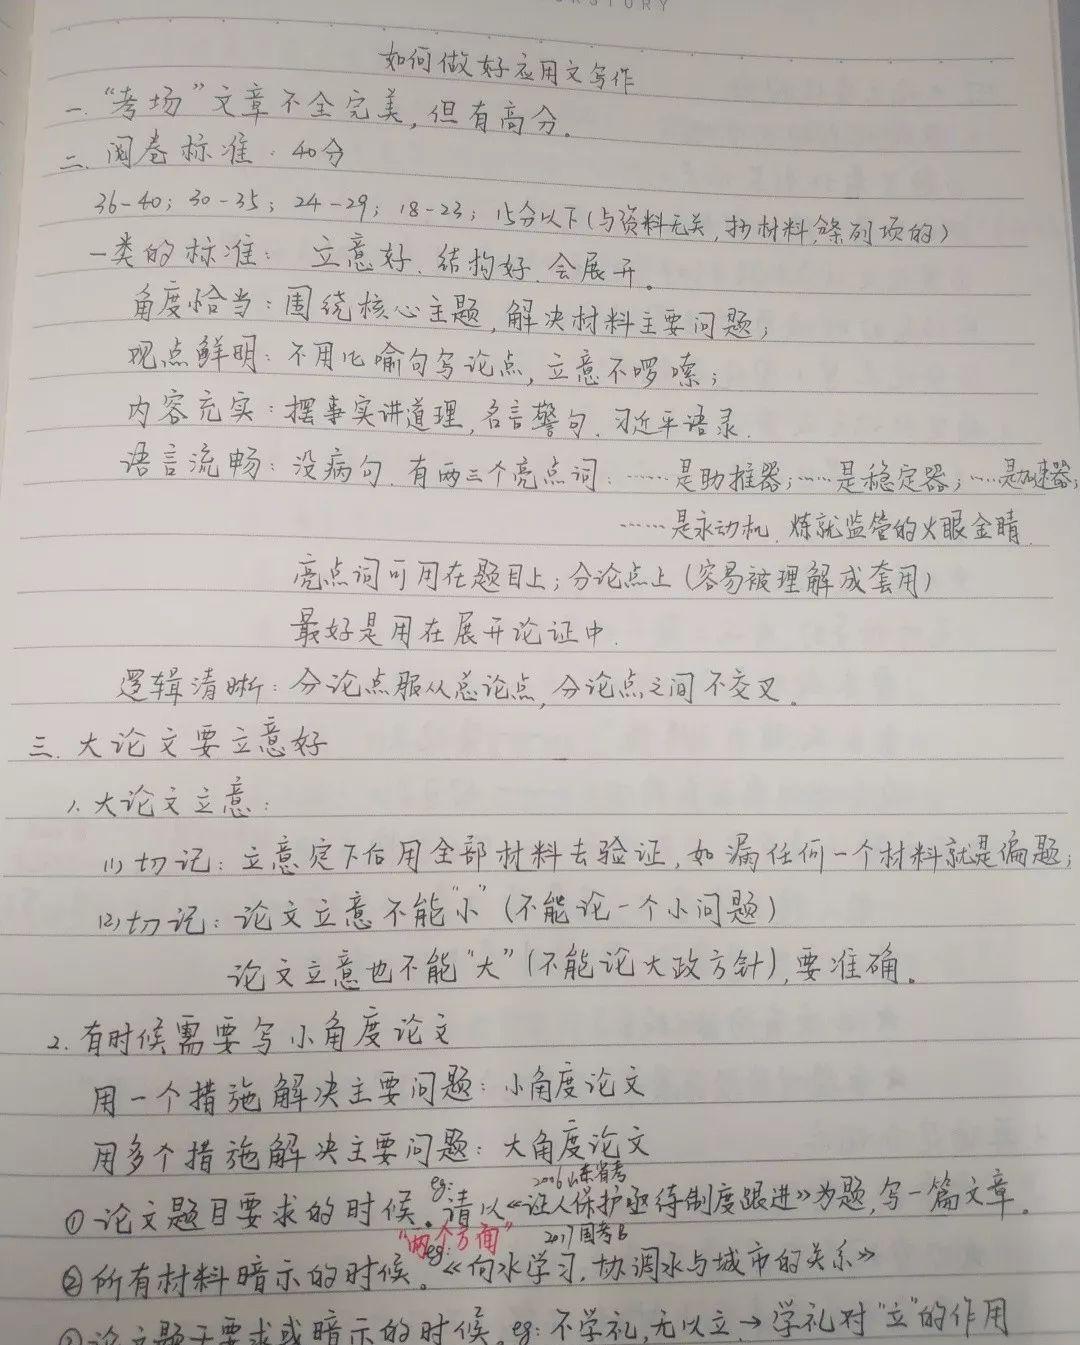 如何做好应用文写作
一."考场"文章不全完美,但有高分。
二.阅卷标准:40分
36-40; 30-35; 24-29; 18-23; 15分以下(与资料无关,抄材料,条列项的)
一类的标准: 立意好、结构好、会展开。
角度恰当:围绕核心主题,解决材料主要问题;
观点鲜明:不用比喻句写论点,立意不啰嗦;
内容充实:摆事实讲道理,名言警句、习近平语录.
语言流畅:没病句、有两三个亮点词:……是助推器;……是稳定器;……是加速器;
……是永动机、炼就监管的火眼金睛.
亮点词可用在题目上;分论点上(容易被理解成套用)
最好是用在展开论证中.
逻辑清晰:分论点服从总论点,分论点之间不交叉。
三.大论文要立意好
1.大论文立意:
(1)切记:立意定下后用全部材料去验证,如漏任何一个材料就是偏题;
(2)切记:论文立意不能"小"(不能论一个小问题)
论文立意也不能"大"(不能论大政方针),要准确。
2.有时候需要写小角度论文
用一个措施解决主要问题:小角度论文
用多个措施解决主要问题:大角度论文
eg: 2006山东省考
①论文题目要求的时候。请以《证人保护亟待制度跟进》为题,写一篇文章。
"两个方面" eg: 2017国考B
②所有材料暗示的时候。《向水学习,协调水与城市的关系》
③论文题干要求或暗示的时候。eg:不学礼,无以立→学礼对"立"的作用